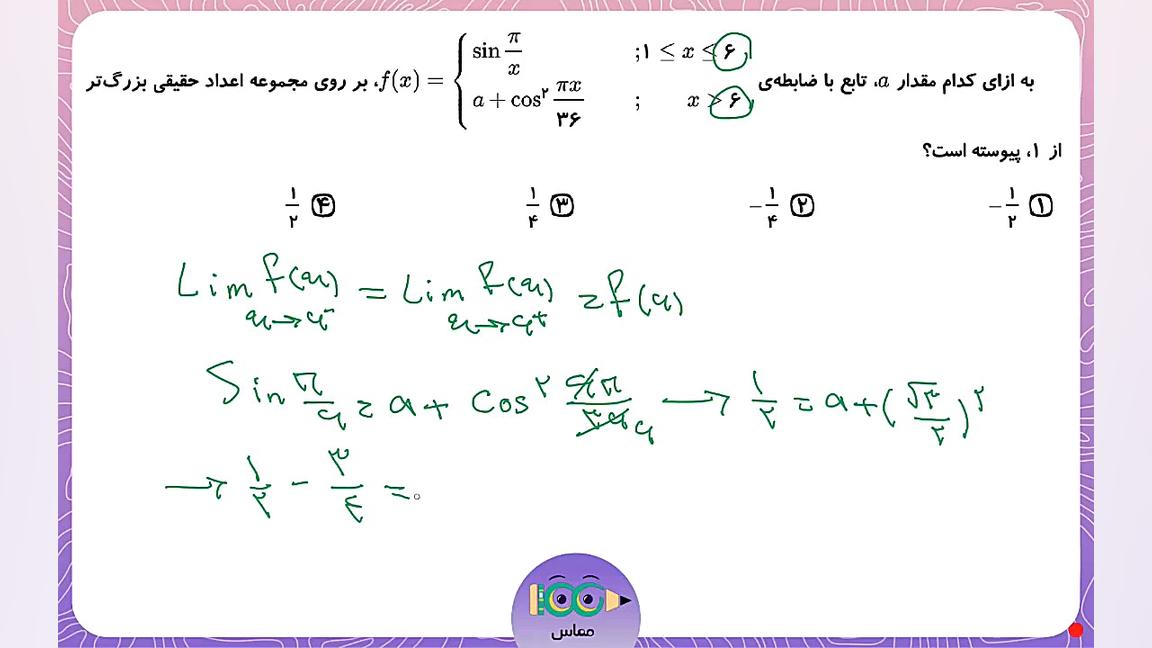 به ازای کدام مقدار a، تابع با ضابطه‌ی f(x) = { sin π/x ; ۱ ≤ x ≤ ۶ , a + cos² πx/۳۶ ; x > ۶ ، بر روی مجموعه اعداد حقیقی بزرگ‌تر
از ۱، پیوسته است؟
۱) -۱/۲ ۲) -۱/۴ ۳) ۱/۴ ۴) ۱/۲
Lim f(x) = Lim f(x) = f(۶)
x→۶⁻ x→۶⁺
Sin π/۶ = a + cos² ۶π/۳۶ ۶ → ۱/۲ = a + (√۳/۲)²
→ ۱/۲ - ۳/۴ =
مماس